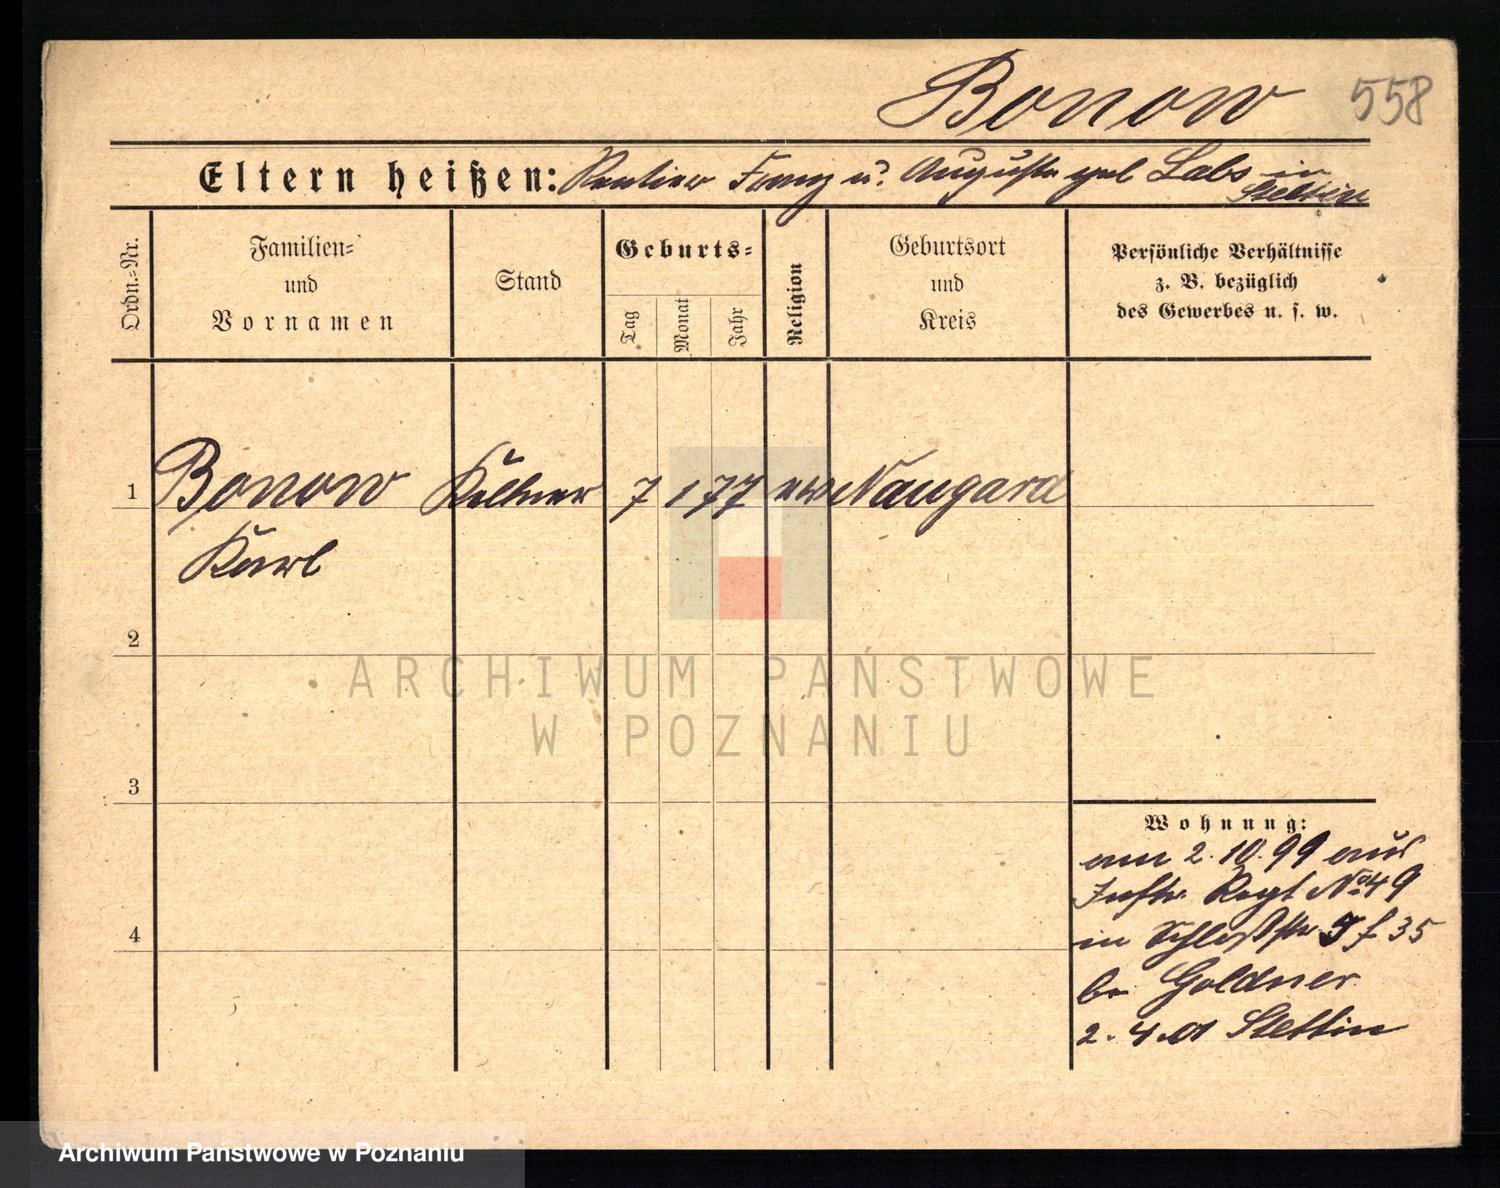 Bonow 558
Eltern heißen: Rentier Franz u. Auguste geb Labs in
Stettin
Ordn.-Nr.
Familien-
und
Vornamen
Stand
Geburts-
Tag
Monat
Jahr
Religion
Geburtsort
und
Kreis
Persönliche Verhältnisse
z. B. bezüglich
des Gewerbes u. s. w.
1 Bonow Kellner 7 1 77 ev Naugard
Karl
2
ARCHIWUM PAŃSTWOWE
W POZNANIU
3
Wohnung:
am 2.10.99 aus
Inftr. Regt No 49
4
in Schloßstr 5 f 35
be Goldner
2.4.01 Stettin
Archiwum Państwowe w Poznaniu